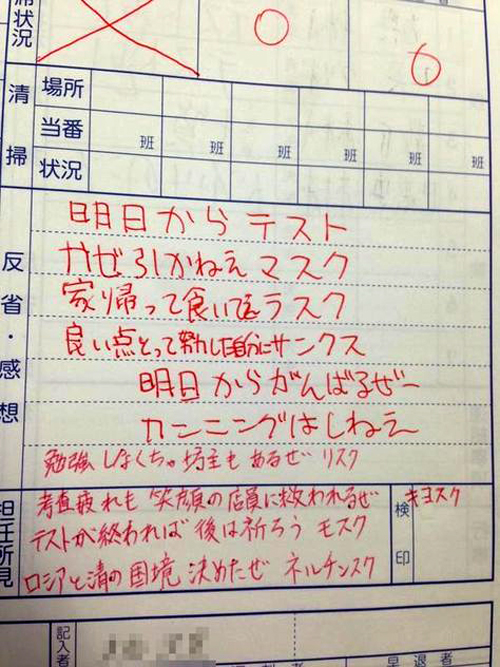 状況
0
6
清掃
場所
当番 班 班 班 班 班 班
状況
反省・感想
明日からテスト
かぜ引かねえマスク
家帰って食いてえラスク
良い点とって努力した自分にサンクス
明日からがんばるぜー
カンニングはしねえー
勉強しなくちゃ坊主もあるぜ リスク
担任所見
考査疲れも 笑顔の店員に救われるぜ キヨスク
テストが終われば 後は祈ろう モスク
ロシアと清の国境 決めたぜ ネルチンスク
検印
記入者